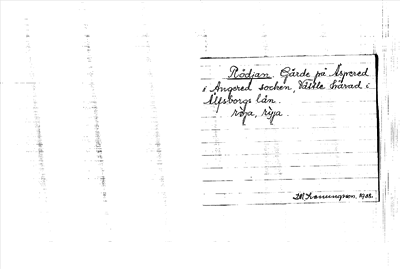 Rödjan. Gärde på Äspered
i Angered socken, Vättle härad i
Älfsborgs län.
röja, ryja
1908.